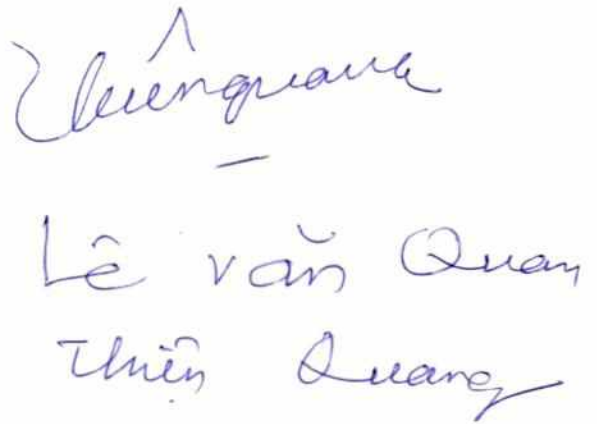 Thiênquang
Lê văn Quan
Thiện Quang